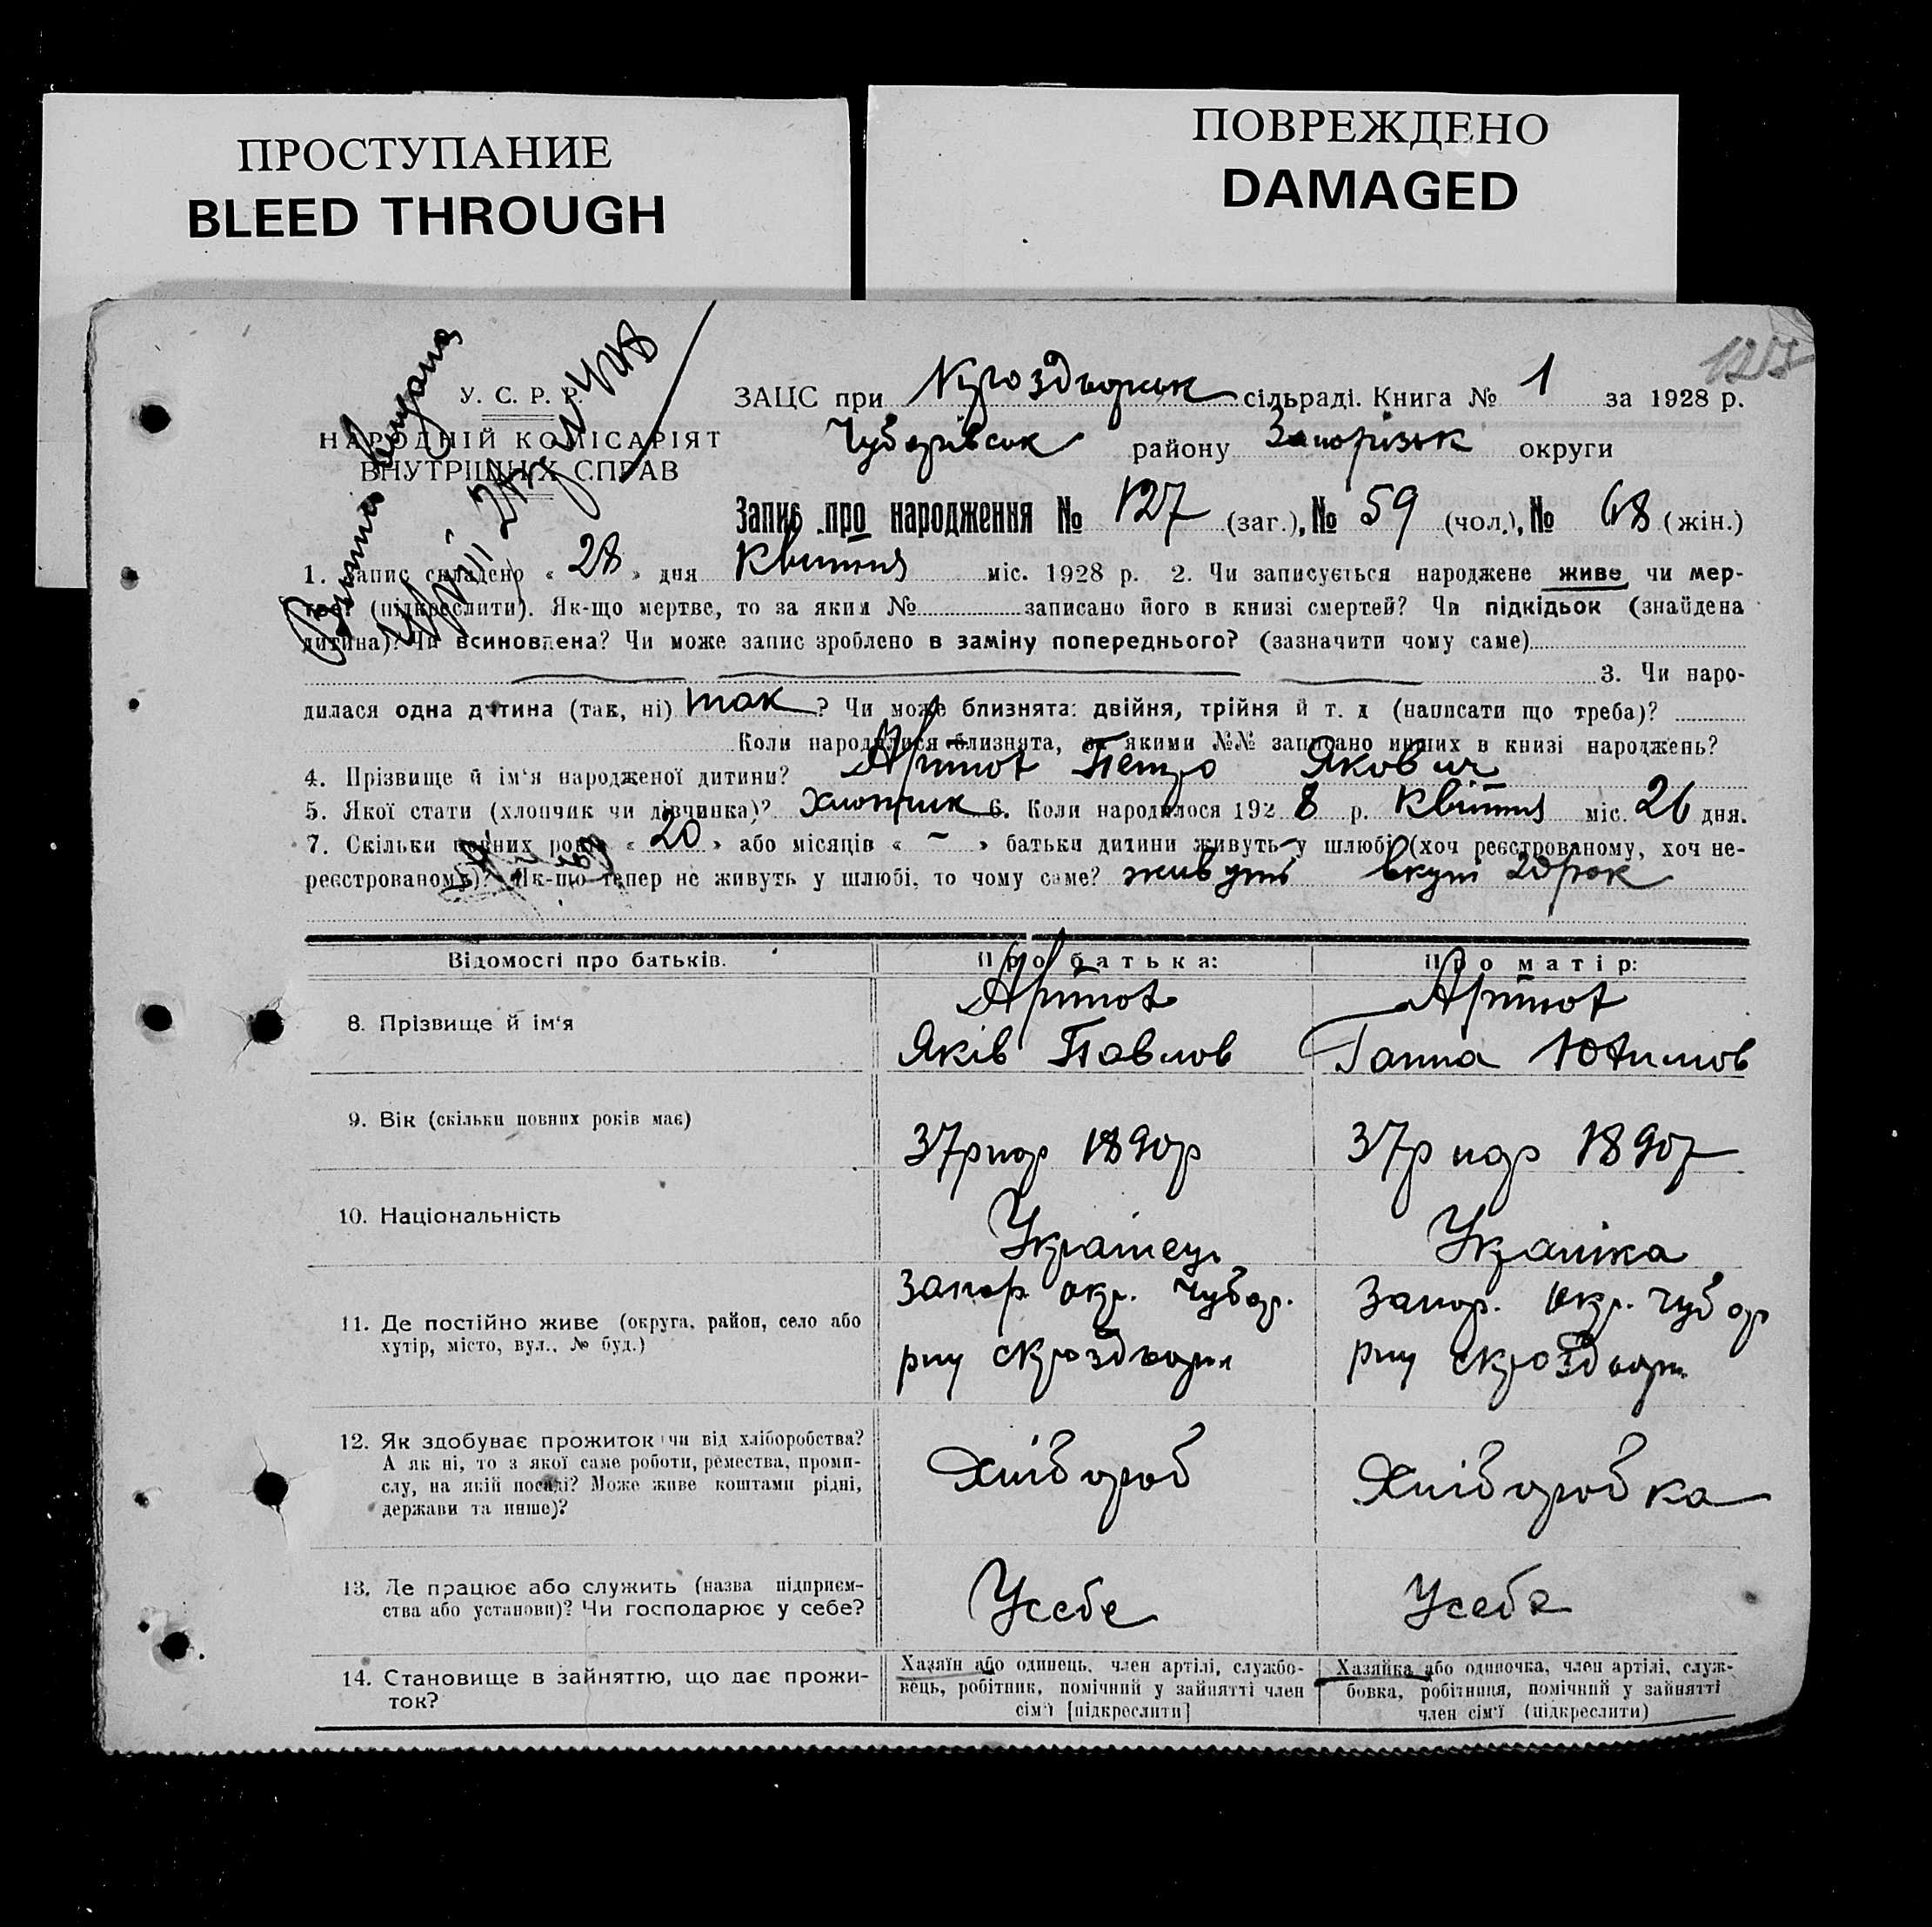 ПРОСТУПАНИЕ
BLEED THROUGH
ПОВРЕЖДЕНО
DAMAGED
У. С. Р. Р.
НАРОДНІЙ КОМІСАРІЯТ
ВНУТРІШНІХ СПРАВ
ЗАЦС при сільраді. Книга № 1 за 1928 р.
Чубарівськ району Запорізьк округи
Запис про народження № 127 (заг.), № 59 (чол.), № 68 (жін.)
1. Запис складено « 28 » дня Квітня міс. 1928 р. 2. Чи записується народжене живе чи мер-
тве (підкреслити). Як-що мертве, то за яким № записано його в книзі смертей? Чи підкідьок (знайдена
дитина)? Чи всиновлена? Чи може запис зроблено в заміну попереднього? (зазначити чому саме)
3. Чи наро-
дилася одна дитина (так, ні) так ? Чи може близнята: двійня, трійня й т. д (написати що треба)?
Коли народилися близнята, за якими №№ записано инших в книзі народжень?
4. Прізвище й ім'я народженої дитини? Петро Якович
5. Якої стати (хлопчик чи дівчинка)? Хлопчик 6. Коли народилося 192 8 р. Квітня міс. 26 дня.
7. Скільки повних років « 20 » або місяців « – » батьки дитини живуть у шлюбі (хоч реєстрованому, хоч не-
реєстрованому)? Як-що тепер не живуть у шлюбі, то чому саме? живуть вкупі 20 рок
Відомості про батьків.
Про батька:
Про матір:
8. Прізвище й ім'я
Яків Павлов
Ганна Юхимов
9. Вік (скільки повних років має)
37р нар 1890р
37р нар 1890р
10. Національність
Українець
Українка
11. Де постійно живе (округа, район, село або
хутір, місто, вул., № буд.)
Запор окр. Чубар.
Запор. окр. Чубар
12. Як здобуває прожиток чи від хліборобства?
А як ні, то з якої саме роботи, ремества, проми-
слу, на якій посаді? Може живе коштами рідні,
держави та инше)?
Хлібороб
Хліборобка
13. Де працює або служить (назва підприєм-
ства або установи)? Чи господарює у себе?
Усебе
Усебе
14. Становище в зайняттю, що дає прожи-
ток?
Хазяїн або одинець, член артілі, службо-
вець, робітник, помічний у зайнятті член
сім'ї [підкреслити]
Хазяйка або одиночка, член артілі, служ-
бовка, робітниця, помічний у зайнятті
член сім'ї (підкреслити)